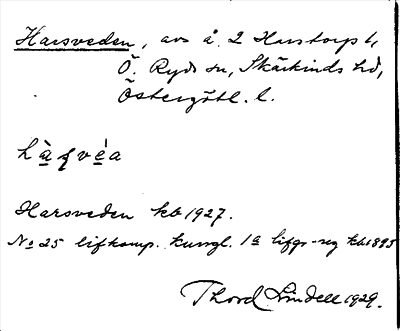 Harsveden, avs å. 2 Harstorp 1,
Ö. Ryds sn, Skärkinds hd,
Östergötl. l.
hàṣvéa
Harsveden kb 1927.
No 25 lifkomp. kungl. 1a lifgr-reg kb 1895
Thord Lindell 1929.